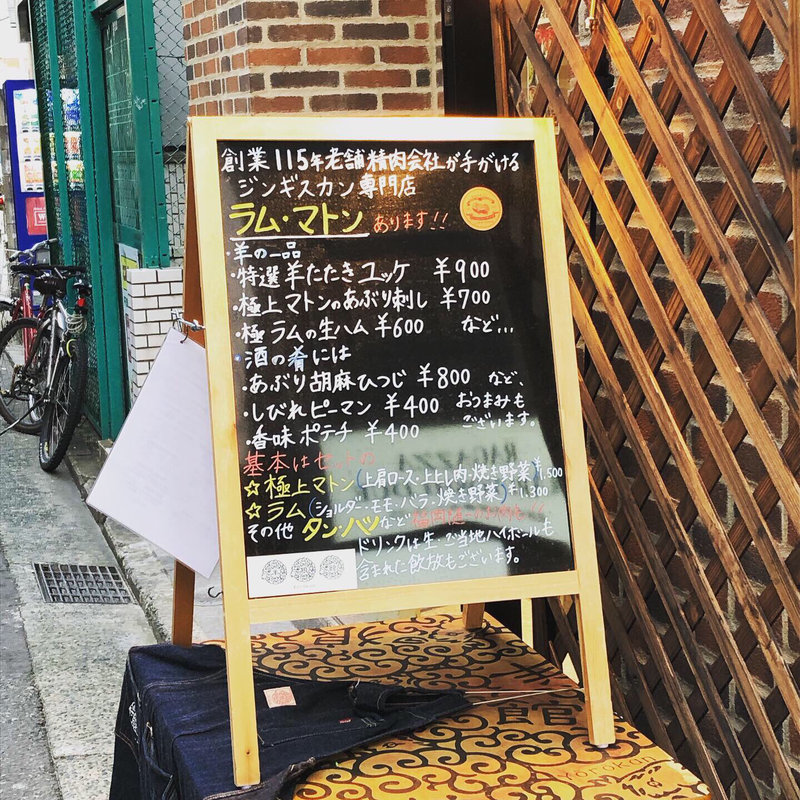 創業115年老舗精肉会社が手がける
ジンギスカン専門店
ラム・マトン あります!!
・羊の一品
・特選 羊たたきユッケ ¥900
・極上マトンのあぶり刺し ¥700
・極 ラムの生ハム ¥600 など...
・酒の肴には
・あぶり胡麻ひつじ ¥800 など、
・しびれピーマン ¥400 おつまみも
・香味ポテチ ¥400 ございます。
基本はセットの
☆極上マトン(上肩ロース・上ヒレ肉・焼き野菜)¥1,500
☆ラム(ショルダー・モモ・バラ・焼き野菜)¥1,300
その他 タン・ハツなど
ドリンクは生・ご当地ハイボールも
含まれた飲放もございます。
館
Yorokan